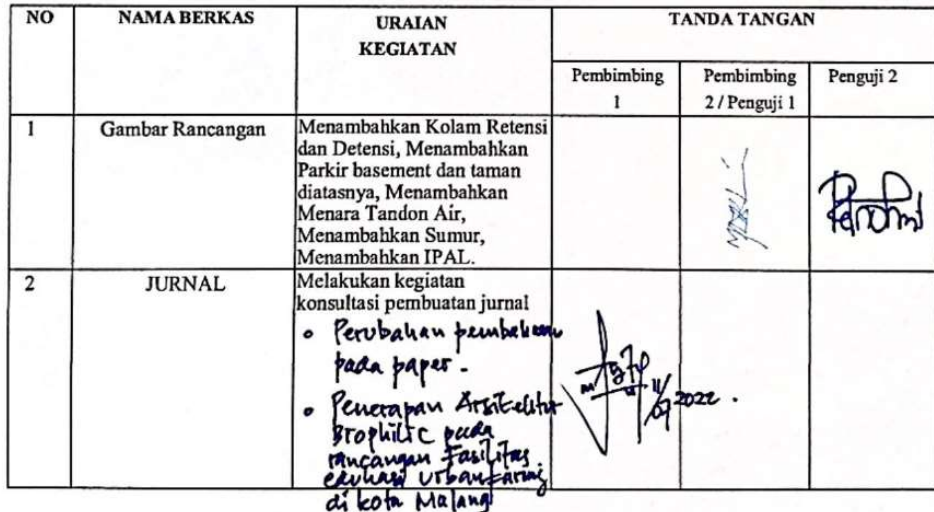 NO NAMA BERKAS URAIAN TANDA TANGAN
KEGIATAN
Pembimbing Pembimbing Penguji 2
1 2 / Penguji 1
1 Gambar Rancangan Menambahkan Kolam Retensi
dan Detensi, Menambahkan
Parkir basement dan taman
diatasnya, Menambahkan
Menara Tandon Air,
Menambahkan Sumur,
Menambahkan IPAL.
2 JURNAL Melakukan kegiatan
konsultasi pembuatan jurnal
• Perubahan pembahasan
pada paper.
• Penerapan Arsitektur
Biophilic pada
rancangan Fasilitas
edukasi Urban Farming
di kota Malang
11/07 2022.